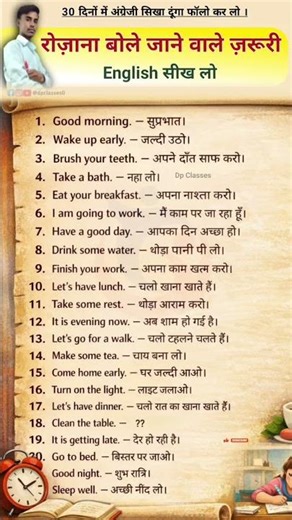 30 दिनों में अंग्रेजी सिखा दूंगा फॉलो कर लो ।
रोज़ाना बोले जाने वाले ज़रूरी
English सीख लो
1. Good morning. – सुप्रभात।
2. Wake up early. – जल्दी उठो।
3. Brush your teeth. – अपने दाँत साफ करो।
4. Take a bath. – नहा लो।
Dp Classes
5. Eat your breakfast. – अपना नाश्ता करो।
6. I am going to work. – मैं काम पर जा रहा हूँ।
7. Have a good day. – आपका दिन अच्छा हो।
8. Drink some water. – थोड़ा पानी पी लो।
9. Finish your work. – अपना काम खत्म करो।
10. Let's have lunch. – चलो खाना खाते हैं।
11. Take some rest. – थोड़ा आराम करो।
12. It is evening now. – अब शाम हो गई है।
13. Let's go for a walk. – चलो टहलने चलते हैं।
14. Make some tea. – चाय बना लो।
15. Come home early. – घर जल्दी आओ।
16. Turn on the light. – लाइट जलाओ।
17. Let's have dinner. – चलो रात का खाना खाते हैं।
18. Clean the table. – ??
19. It is getting late. – देर हो रही है।
20. Go to bed. – बिस्तर पर जाओ।
Good night. – शुभ रात्रि।
Sleep well. – अच्छी नींद लो।